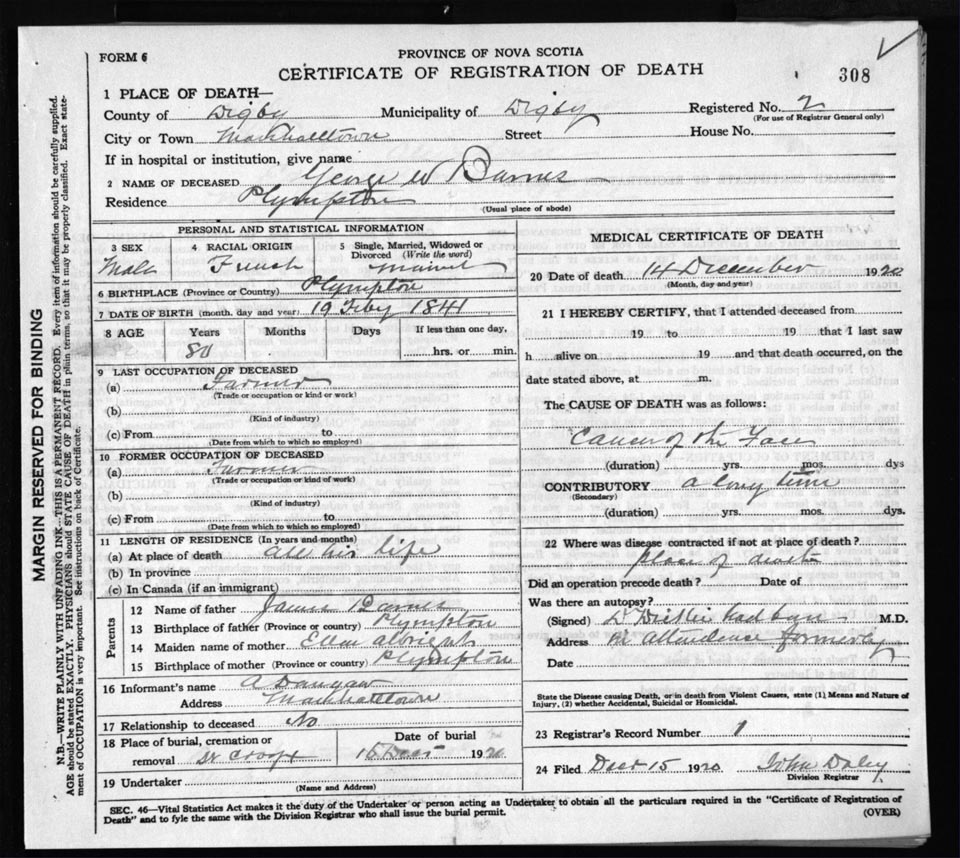 FORM 6
PROVINCE OF NOVA SCOTIA
CERTIFICATE OF REGISTRATION OF DEATH
308
1 PLACE OF DEATH—
County of Digby Municipality of Digby Registered No. 2
(For use of Registrar General only)
City or Town Marshalltown Street House No.
If in hospital or institution, give name
2 NAME OF DECEASED George W Barnes
Residence Plympton
(Usual place of abode)
PERSONAL AND STATISTICAL INFORMATION
3 SEX 4 RACIAL ORIGIN 5 Single, Married, Widowed or Divorced (Write the word)
Male French
6 BIRTHPLACE (Province or Country) Plympton
7 DATE OF BIRTH (month, day and year) 19 Feby 1841
8 AGE Years Months Days If less than one day,
80 hrs. or min.
9 LAST OCCUPATION OF DECEASED
(a) Farmer
(Trade or occupation or kind or work)
(b)
(Kind of industry)
(c) From to
(Date from which to which so employed)
10 FORMER OCCUPATION OF DECEASED
(a) Farmer
(Trade or occupation or kind of work)
(b)
(Kind of industry)
(c) From to
(Date from which to which so employed)
11 LENGTH OF RESIDENCE (In years and months)
(a) At place of death all his life
(b) In province
(c) In Canada (if an immigrant)
Parents
12 Name of father James Barnes
13 Birthplace of father (Province or country) Plympton
14 Maiden name of mother Ellen albright
15 Birthplace of mother (Province or country) Plympton
16 Informant's name A
Address Marshalltown
17 Relationship to deceased No
18 Place of burial, cremation or removal Date of burial
15 1920
19 Undertaker
(Name and Address)
MEDICAL CERTIFICATE OF DEATH
20 Date of death 14 December 1920
(Month, day and year)
21 I HEREBY CERTIFY, that I attended deceased from
19 to 19 that I last saw
h alive on 19 and that death occurred, on the
date stated above, at m.
The CAUSE OF DEATH was as follows:
Cancer of the Face
(duration) yrs. mos. dys
CONTRIBUTORY a long time
(Secondary)
(duration) yrs. mos. dys.
22 Where was disease contracted if not at place of death?
place of death
Did an operation precede death? Date of
Was there an autopsy?
(Signed) Dr had been M.D.
Address in attendence formerly
Date
State the Disease causing Death, or in death from Violent Causes, state (1) Means and Nature of
Injury, (2) whether Accidental, Suicidal or Homicidal.
23 Registrar's Record Number 1
24 Filed 15 1920 John Daley
Division Registrar
SEC. 46—Vital Statistics Act makes it the duty of the Undertaker or person acting as Undertaker to obtain all the particulars required in the "Certificate of Registration of
Death" and to fyle the same with the Division Registrar who shall issue the burial permit. (OVER)
MARGIN RESERVED FOR BINDING
N.B.—WRITE PLAINLY, WITH UNFADING INK—THIS IS A PERMANENT RECORD. Every item of information should be carefully supplied.
AGE should be stated EXACTLY. PHYSICIANS should STATE CAUSE OF DEATH in plain terms, so that it may be properly classified. Exact state-
ment of OCCUPATION is very important. See instructions on back of Certificate.